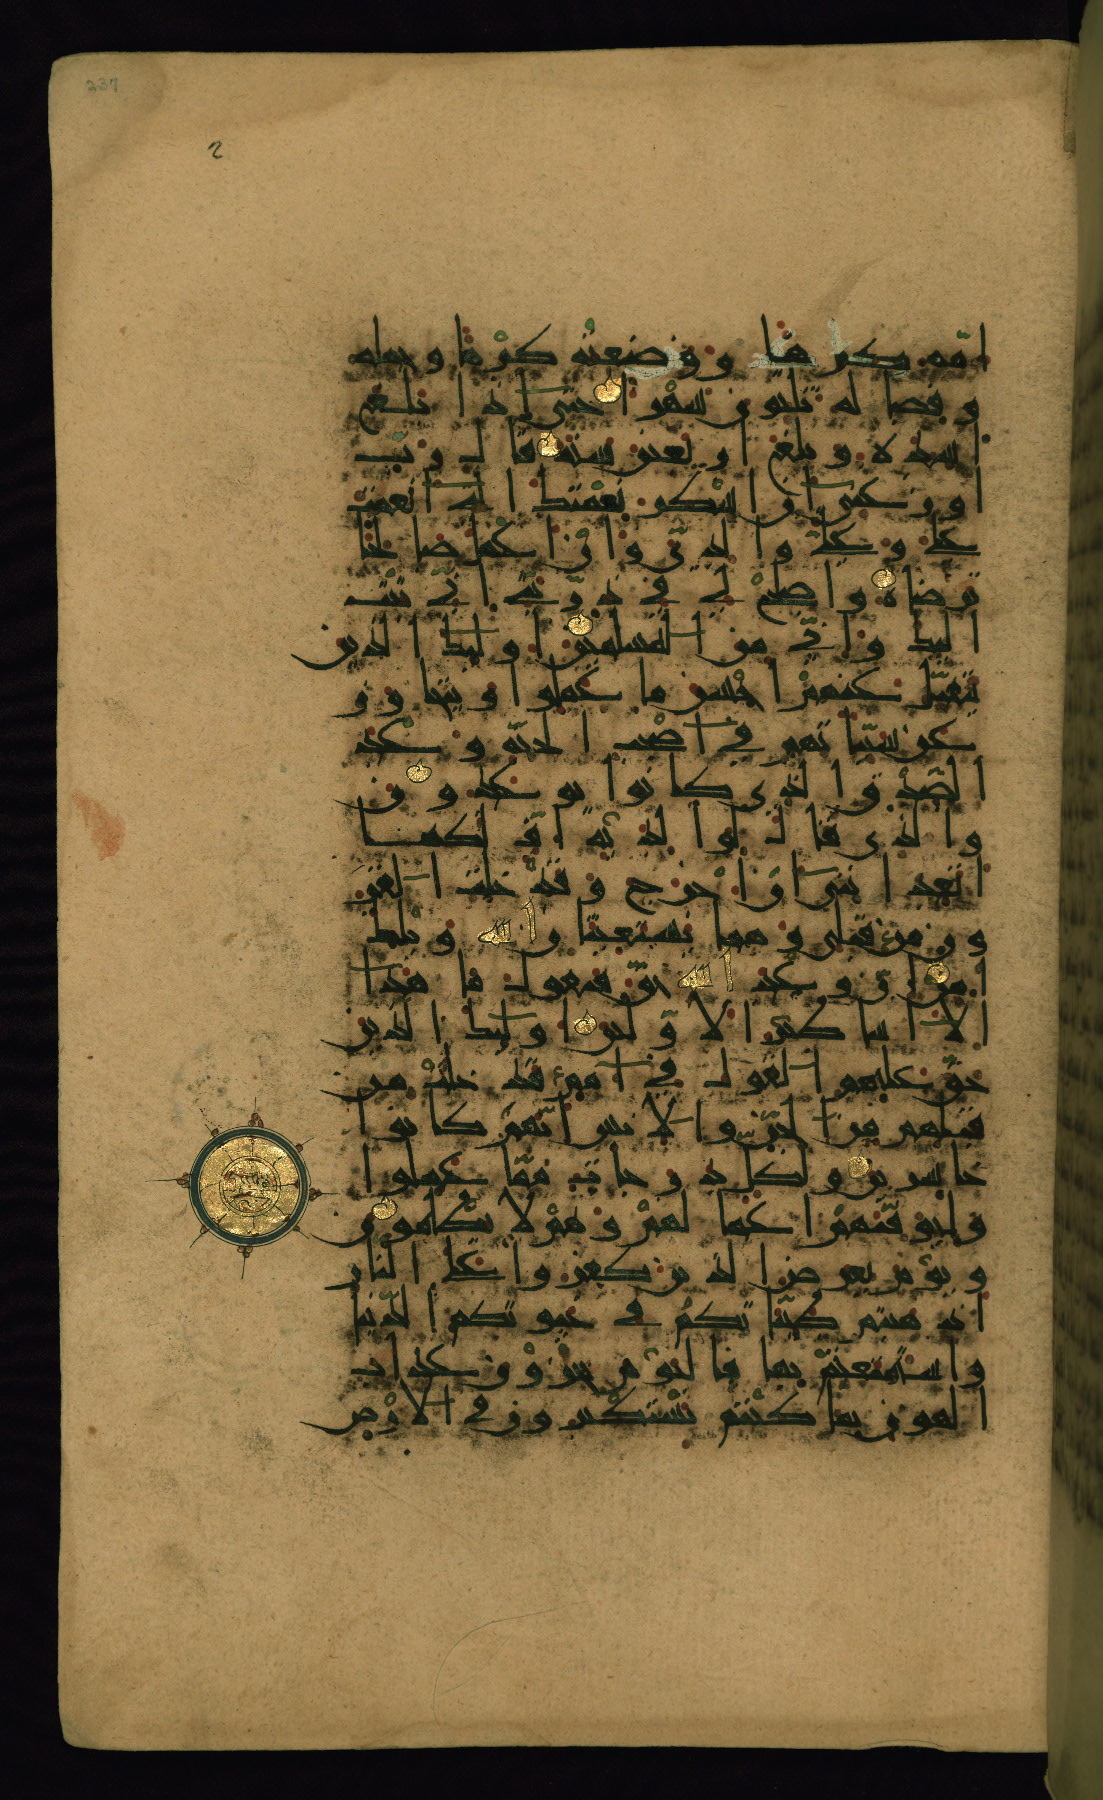 237
2
امه كرها ووضعته كرها وحمله
وفصاله ثلثون شهرا حتى اذا بلغ
اشده وبلغ اربعين سنة قال رب
اوزعني ان اشكر نعمتك التي انعمت
علي وعلى والدي وان اعمل صالحا
ترضاه واصلح لي في ذريتي اني تبت
اليك واني من المسلمين اوليك الذين
يتقبل عنهم احسن ما عملوا ويتجاوز
عن سياتهم في اصحب الجنة وعد
الصدق الذي كانوا يوعدون
والذي قال لوالديه اف لكما
اتعدانني ان اخرج وقد خلت القر
ون من قبلي وهما يستغيثان الله ويلك
امن ان وعد الله حق فيقول ما هذا
الا اساطير الاولين اوليك الذين
حق عليهم القول في امم قد خلت من
قبلهم من الجن والانس انهم كانوا
خاسرين ولكل درجات مما عملوا
وليوفيهم اعمالهم وهم لا يظلمون
ويوم يعرض الذين كفروا على النار
اذهبتم طيباتكم في حيوتكم الدنيا
واستمتعتم بها فاليوم تجزون عذاب
الهون بما كنتم تستكبرون في الارض